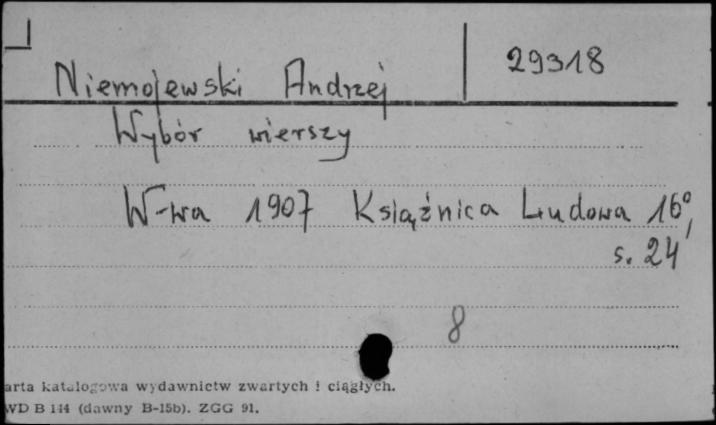 29318
Niemojewski Andrzej
Wybór wierszy
W-wa 1907 Książnica Ludowa 16°,
s. 24
8
arta katalogowa wydawnictw zwartych i ciągłych.
WD B 144 (dawny B-15b). ZGG 91.